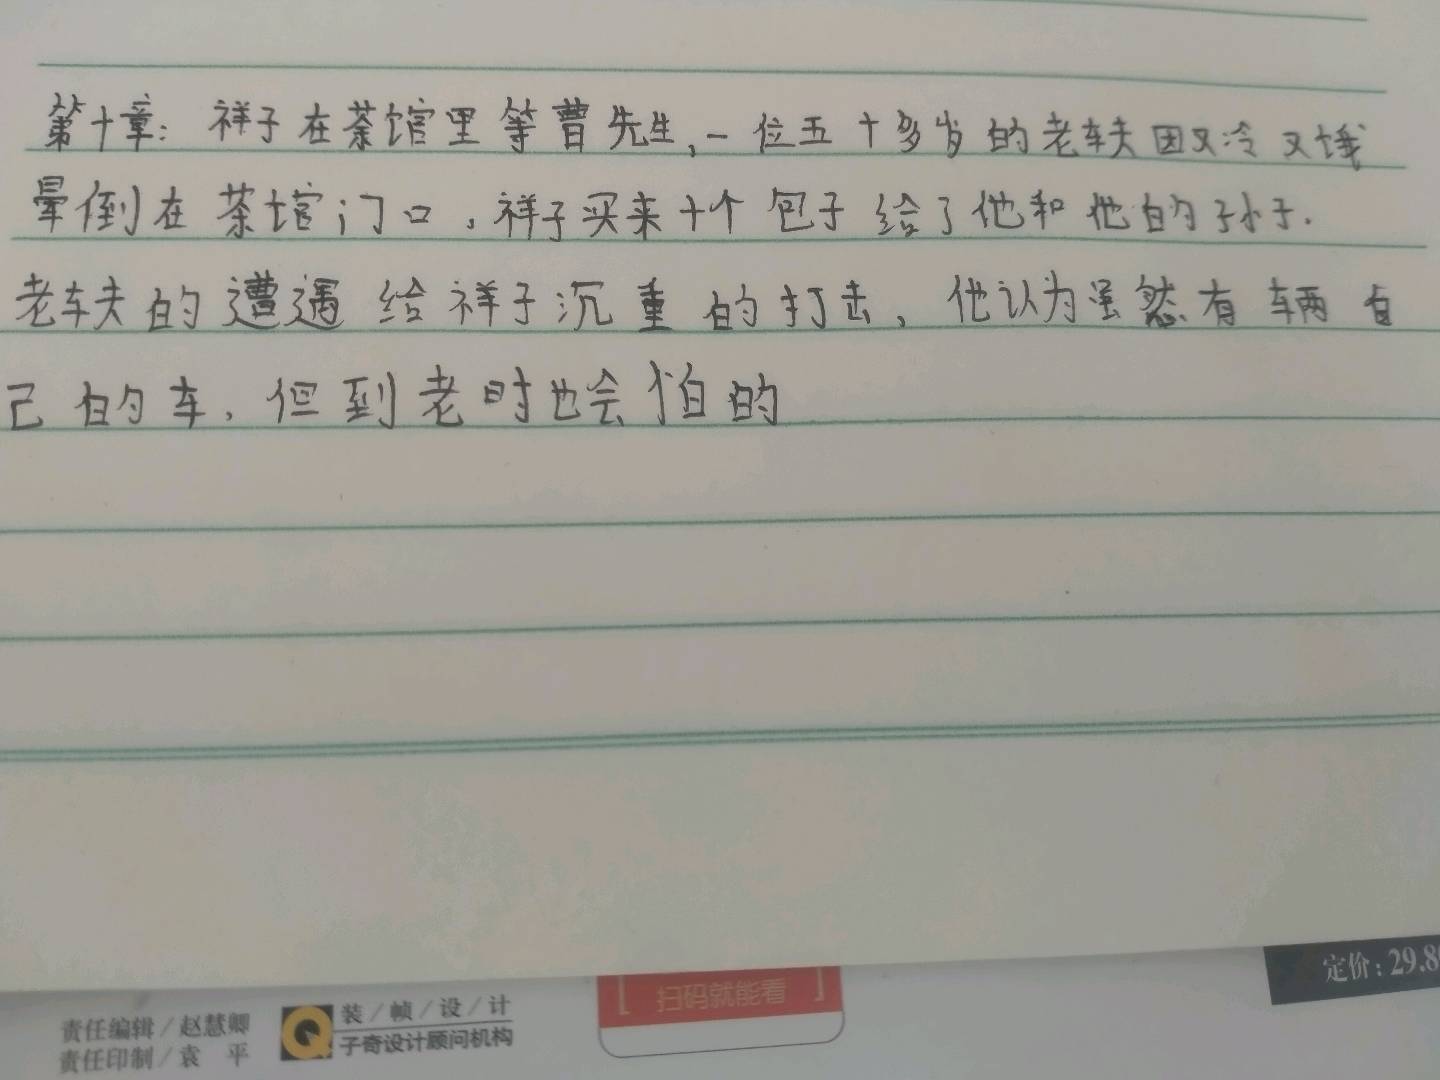 第十章：祥子在茶馆里等曹先生，一位五十多岁的老车夫因又冷又饿
晕倒在茶馆门口，祥子买来十个包子给了他和他的孙子.
老车夫的遭遇给祥子沉重的打击，他认为虽然有辆自
己的车，但到老时也会怕的
定价：29.80
[扫码就能看]
责任编辑／赵慧卿
责任印制／袁 平
装／帧／设／计
子奇设计顾问机构